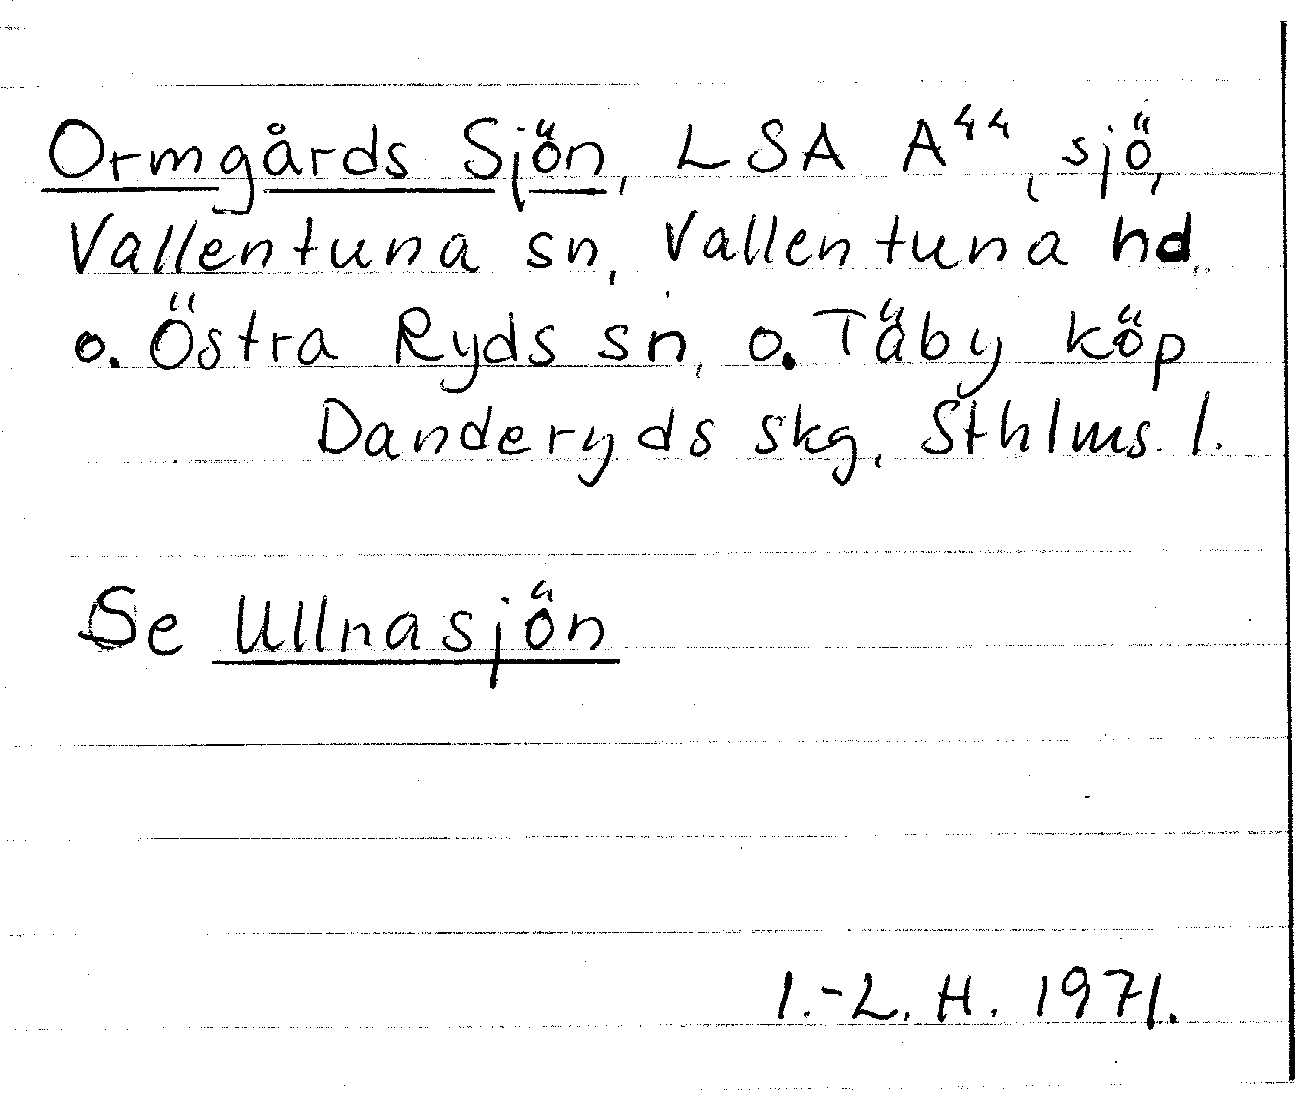 Ormgårds Sjön, LSA A⁴⁴, sjö,
Vallentuna sn, Vallentuna hd.
o. Östra Ryds sn, o. Täby köp
Danderyds skg, Sthlms. l.
Se Ullnasjön
I.-L. H. 1971.